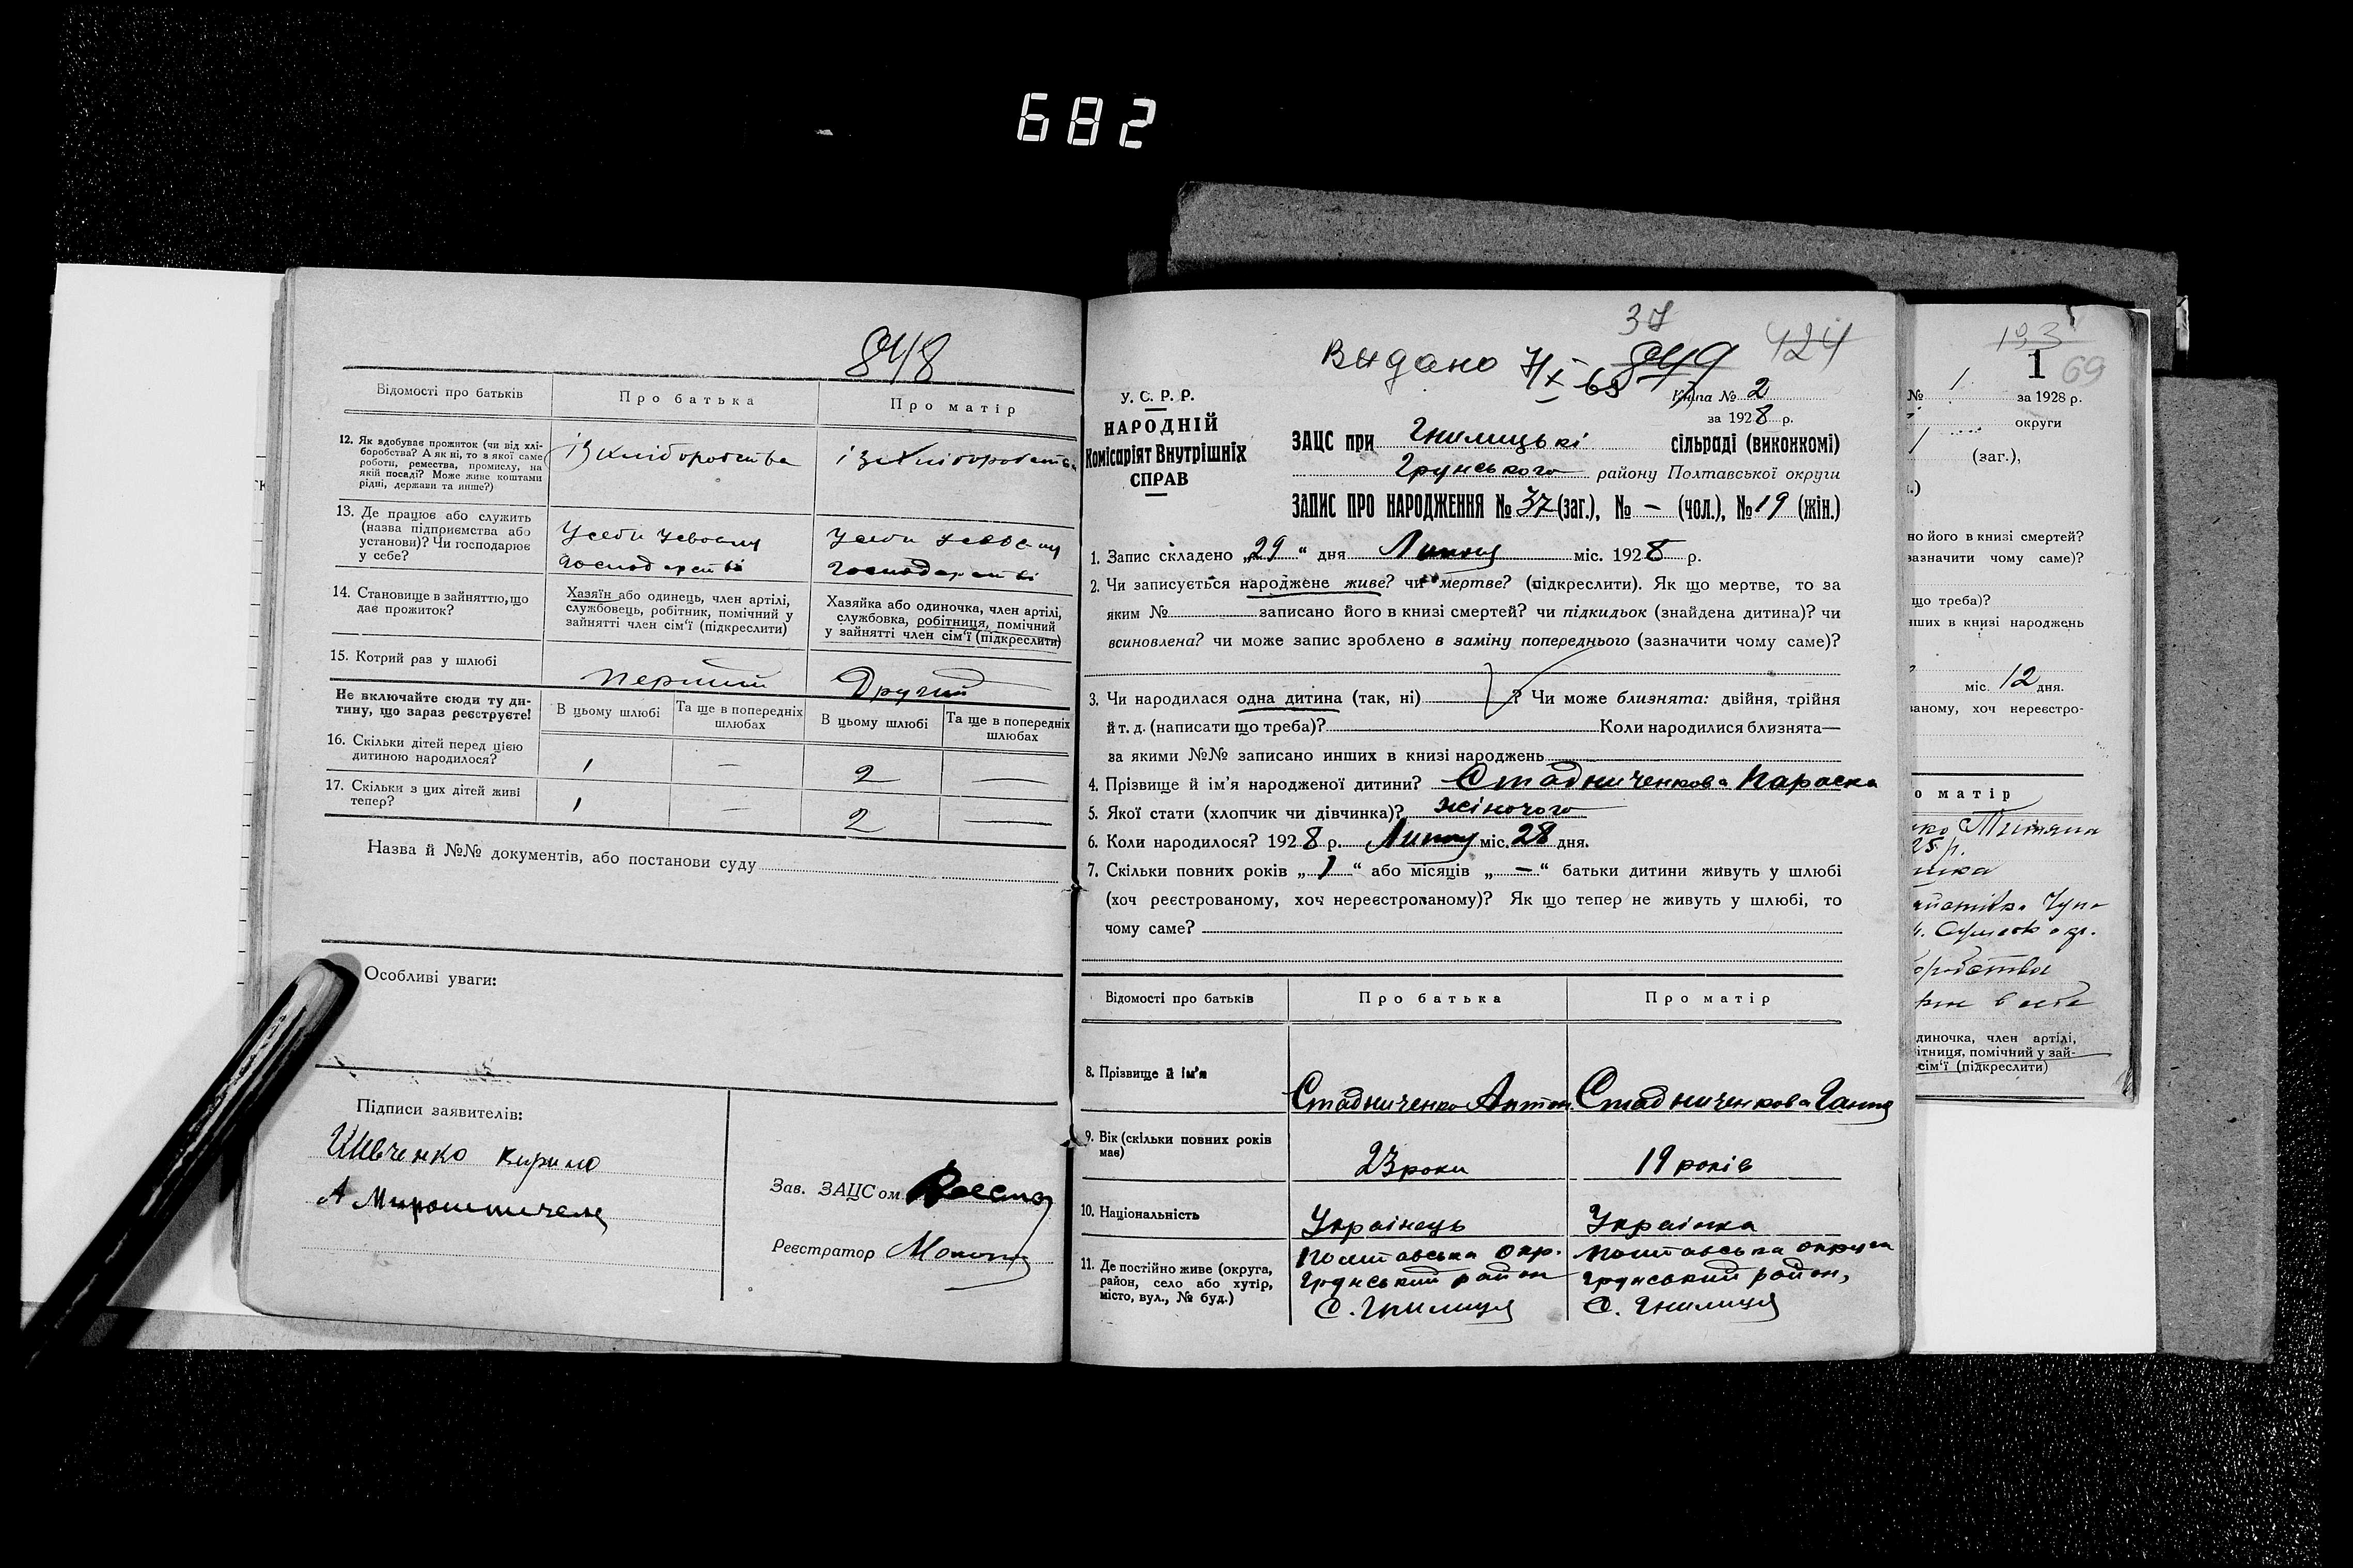 682
848
Відомості про батьків
Про батька
Про матір
12. Як здобуває прожиток (чи від хлі-
боробства? А як ні, то з якої саме
роботи, ремества, промислу, на
якій посаді? Може живе коштами
рідні, держави та инше?)
із хліборобства
із хліборобства
13. Де працює або служить
(назва підприємства або
установи)? Чи господарює
у себе?
У себи усвоему
господарстві
У себи усвоему
господарстві
14. Становище в зайняттю, що
дає прожиток?
Хазяїн або одинець, член артілі,
службовець, робітник, помічний у
зайнятті член сім'ї (підкреслити)
Хазяйка або одиночка, член артілі,
службовка, робітниця, помічний
у зайнятті член сім'ї (підкреслити)
15. Котрий раз у шлюбі
перший
Другий
Не включайте сюди ту ди-
тину, що зараз реєструєте!
В цьому шлюбі
Та ще в попередніх
шлюбах
В цьому шлюбі
Та ще в попередніх
шлюбах
16. Скільки дітей перед цією
дитиною народилося?
1 — 2 —
17. Скільки з цих дітей живі
тепер?
1 — 2 —
Назва й №№ документів, або постанови суду
Особливі уваги:
Підписи заявителів:
Шевченко Кирило
А Мирошниченк
Зав. ЗАЦСом
Реєстратор
37
Видано 7/X-65 849 424
У. С. Р. Р.
НАРОДНІЙ
Комісаріят Внутрішніх
СПРАВ
Книга № 2
за 1928 р.
ЗАЦС при Гнилицькі сільраді (виконкомі)
Грунського району Полтавської округи
ЗАПИС ПРО НАРОДЖЕННЯ № 37 (заг.), № – (чол.), № 19 (жін.)
1. Запис складено „29“ дня Липня міс. 1928 р.
2. Чи записується народжене живе? чи мертве? (підкреслити). Як що мертве, то за
яким № записано його в книзі смертей? чи підкидьок (знайдена дитина)? чи
всиновлена? чи може запис зроблено в заміну попереднього (зазначити чому саме)?
3. Чи народилася одна дитина (так, ні) ? Чи може близнята: двійня, трійня
й т. д. (написати що треба)? Коли народилися близнята—
за якими №№ записано инших в книзі народжень
4. Прізвище й ім'я народженої дитини? Стадниченкова Параска
5. Якої стати (хлопчик чи дівчинка)? жіночого
6. Коли народилося? 1928 р. Липня міс. 28 дня.
7. Скільки повних років „1“ або місяців „—“ батьки дитини живуть у шлюбі
(хоч реєстрованому, хоч нереєстрованому)? Як що тепер не живуть у шлюбі, то
чому саме?
Відомості про батьків
Про батька
Про матір
8. Прізвище й ім'я
Стадниченко Антон
Стадниченкова Ганна
9. Вік (скільки повних років
має)
23 роки
19 років
10. Національність
Українець
Українка
11. Де постійно живе (округа,
район, село або хутір,
місто, вул., № буд.)
Полтавська окр.
Грунський район
С. Гнилиця
Полтавська округа
Грунський район,
С. Гнилиця
193
1 69
№ 1 за 1928 р.
округи
(заг.),
но його в книзі смертей?
зазначити чому саме)?
що треба)?
нших в книзі народжень
міс. 12 дня.
ваному, хоч нереєстро-
о матір
25 р.
диночка, член артілі,
ітниця, помічний у зай-
сім'ї (підкреслити)